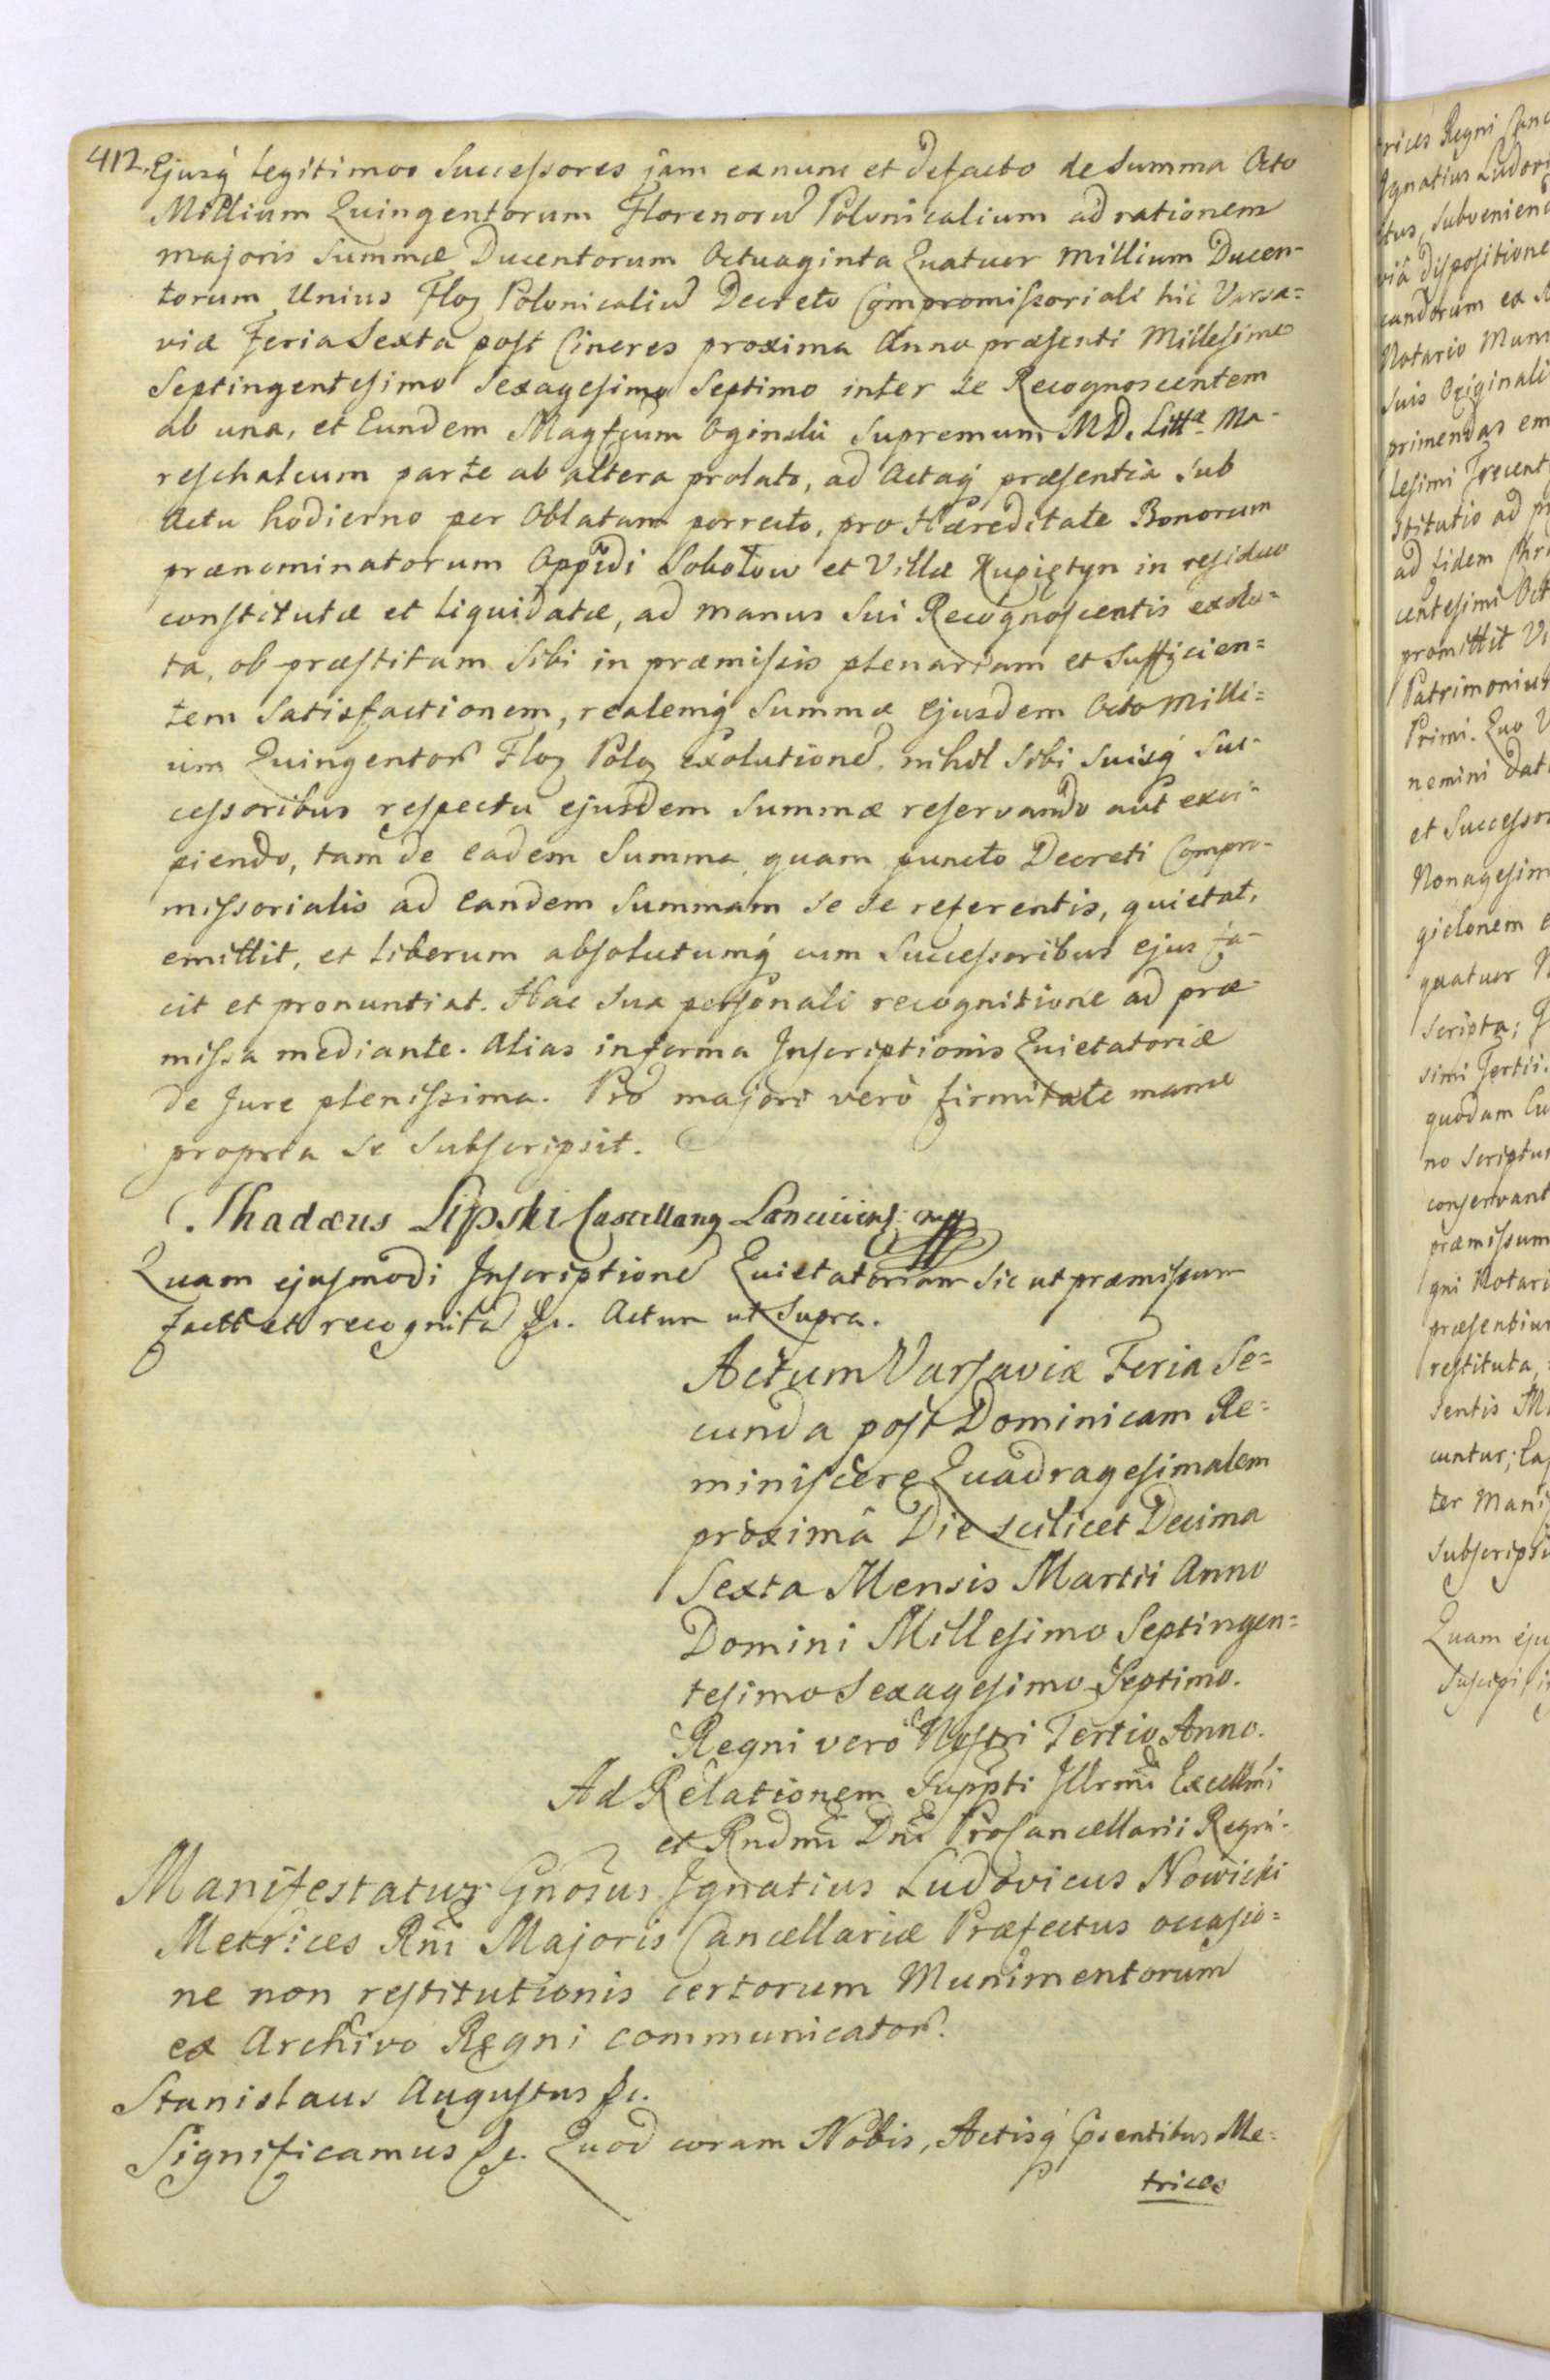 412. Ejusq́ legitimos Successores jam exnunc et defacto de Summa Octo
Millium Quingentorum Florenorũ Polonicalium ad rationem
majoris Summæ Ducentorum Octuaginta Quatuor Millium Ducen-
torum Unius Floꝝ Polonicaliũ Decreto Compromissoriali hic Varsa=
viæ Feria Sexta post Cineres proxima Anno præsenti Millesimo
Septingentesimo Sexagesimo Septimo inter se Recognoscentem
ab una, et Eundem Magfcum Oginski Supremum M.D. Littæ Ma-
reschalcum parte ab altera prolato, ad Actaq́ præsentia sub
Actu hodierno per Oblatam porrecto, pro Hæreditate Bonorum
prænominatorum Oppidi Sokołow et Villæ Kupiętyn in residuo
constitutæ et liquidatæ, ad manus Sui Recognoscentis exolu=
ta, ob præstitam Sibi in præmissis plenariam et Sufficien=
tem Satisfactionem, realemq́ Summæ Ejusdem Octo Milli=
um Quingentor̃ Floꝝ Poloꝝ exolutionẽ, nihil Sibi Suisq́ Suc-
cessoribus respectu ejusdem Summæ reservando aut exci-
piendo, tam de eadem Summa quam puncto Decreti Compro-
missorialis ad eandem Summam se se referentis, quietat,
emittit, et liberum absolutumq́ cum Successoribus ejus fa-
cit et pronuntiat. Hac Sua personali recognitione ad præ-
missa mediante. Alias in forma Inscriptionis Quietatoriæ
de Jure plenissima. Pro majori verò firmitate manu
propria se Subscripsit.
Thadæus Lipski Castellanꝰ Lanciciens: mp
Quam ejusmodi Inscriptionẽ Quietatoriam sic ut præmissum
factã et recognitã &c. Actum ut Supra.
Actum Varsaviæ Feria Se=
cunda post Dominicam Re=
miniscere Quadragesimalem
proximâ Die scilicet Decima
Sexta Mensis Martii Anno
Domini Millesimo Septingen=
tesimo Sexagesimo Septimo.
Regni verò Nostri Tertio Anno.
Ad Relationem Suppti Illrmi Excellmi
et Rndmi Dni ProCancellarii Regni.
Manifestatur Gnosus Ignatius Ludovicus Nowicki
Metrices Rni Majoris Cancellariæ Præfectus occasio=
ne non restitutionis certorum Munimentorum
ex Archivo Regni communicator̃.
Stanislaus Augustus &c.
Significamus &c. Quod coram Nobis, Actisq́ præntibus Me=
trices